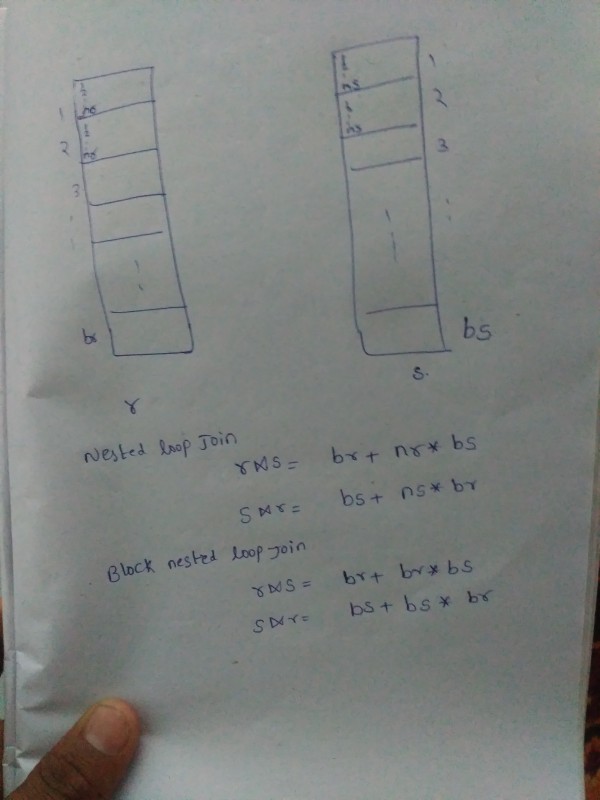 1
nr
2
nr
3
br
r
1
ns
2
ns
3
bs
s.
Nested loop Join
r⋈s = br + nr * bs
s⋈r = bs + ns * br
Block nested loop-Join
r⋈s = br + br * bs
s⋈r = bs + bs * br